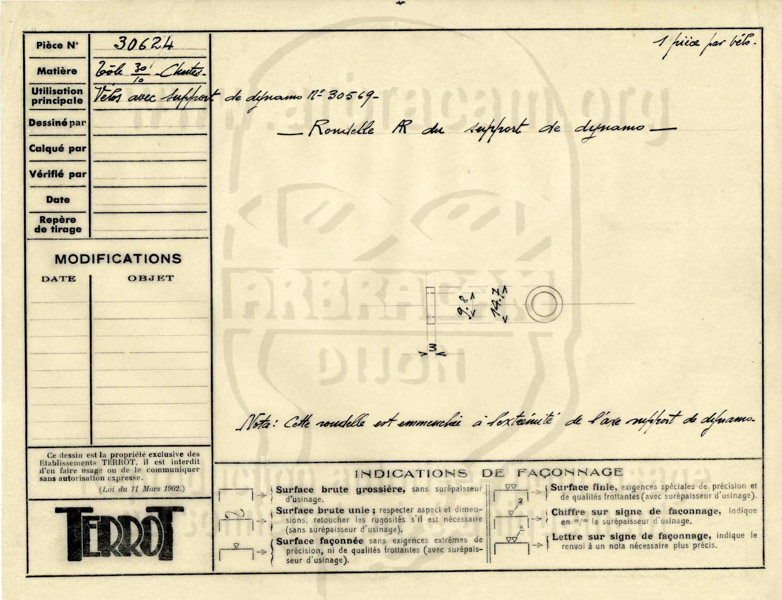 Pièce N° 30624
1 pièce par vélo.
Matière Tôle 30/10 - Chutes -
Utilisation principale Vélos avec support de dynamo N° 30569 -
Dessiné par
— Rondelle AR du support de dynamo —
Calqué par
Vérifié par
Date
Repère de tirage
MODIFICATIONS
DATE OBJET
9.8
14.7
3
Nota: Cette rondelle est emmanchée à l'extrémité de l'axe support de dynamo.
Ce dessin est la propriété exclusive des
Etablissements TERROT, il est interdit
d'en faire usage ou de le communiquer
sans autorisation expresse.
(Loi du 11 Mars 1902.)
TERROT
INDICATIONS DE FAÇONNAGE
Surface brute grossière, sans surépaisseur
d'usinage.
Surface brute unie; respecter aspect et dimen-
sions, retoucher les rugosités s'il est nécessaire
(sans surépaisseur d'usinage).
Surface façonnée sans exigences extrêmes de
précision, ni de qualités frottantes (avec surépais-
seur d'usinage).
Surface finie, exigences spéciales de précision et
de qualités frottantes (avec surépaisseur d'usinage).
2
Chiffre sur signe de faconnage, indique
en m/m la surépaisseur d'usinage.
Lettre sur signe de façonnage, indique le
renvoi à un nota nécessaire plus précis.
ARBRACAM
DIJON